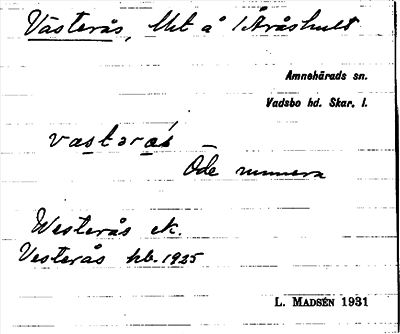 Västerås, lht å 1 Åråshult
Amnehärads sn.
Vadsbo hd. Skar. l.
västərås
Öde numera
Westerås ek.
Vesterås hb. 1925
L. MADSÉN 1931